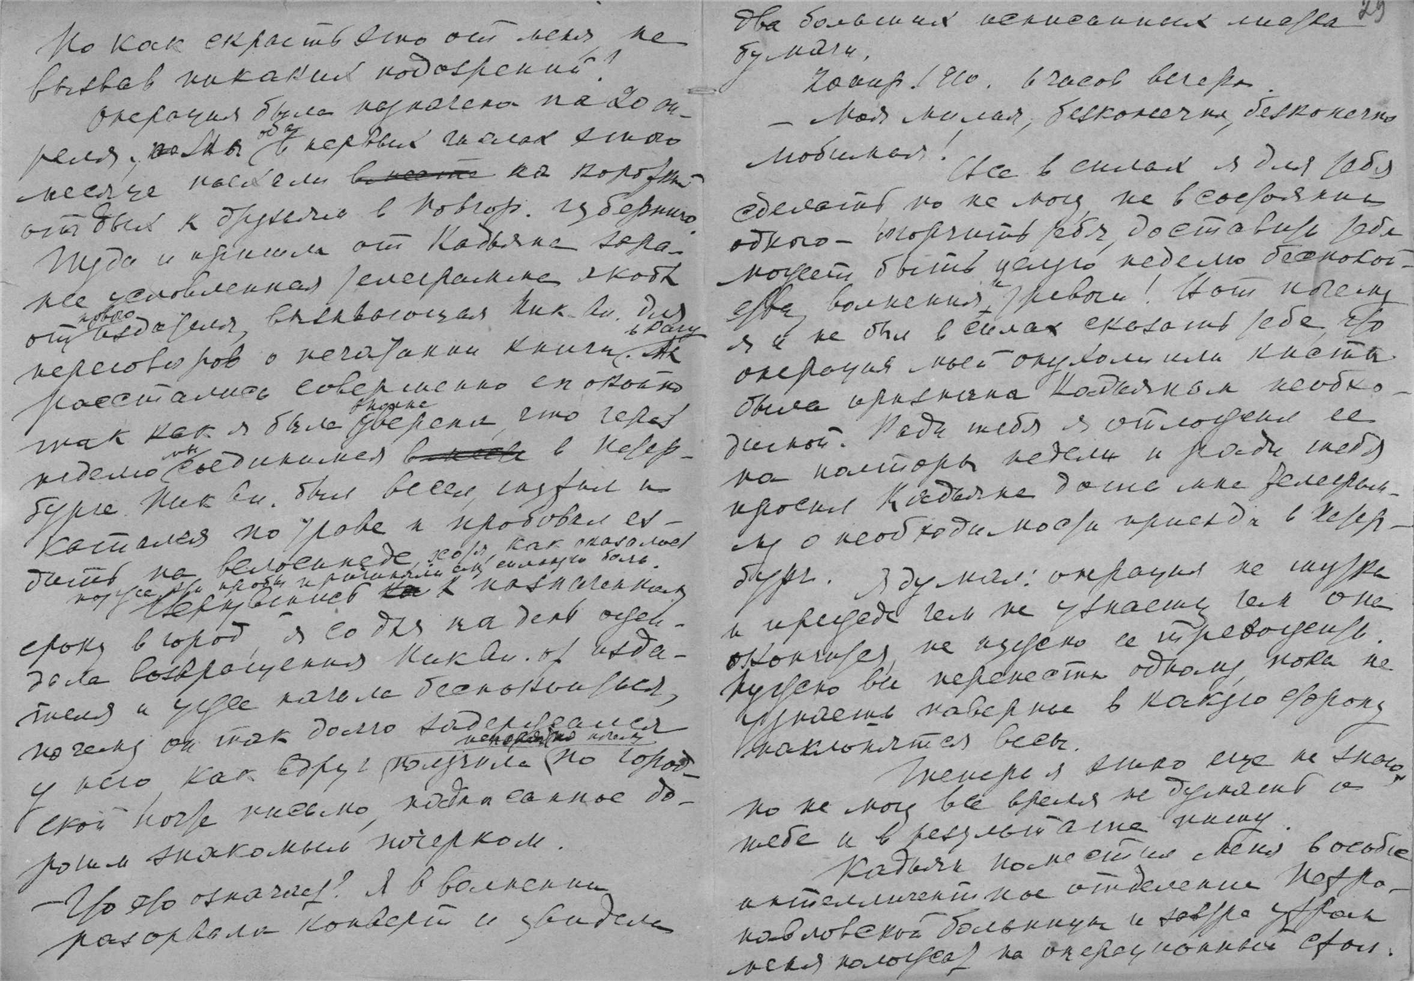 Но как скрыть это от меня, не
вызвав никаких подозрений!
Операция была назначена на 20 ап-
реля, мы оба в первых числах этого
месяца поехали на короткий
отдых к друзьям в Новгор. губернию.
Туда и пришла от Кадьяна зара-
нее условленная телеграмма якобы
от нового издателя, вызывающая Ник. Ал. для
переговоров о печатании книги.
расстались совершенно спокойно
так как я была вполне уверена, что через
неделю мы соединимся в Петер-
бурге. Ник. Ал. был весел, шутил и
катался по траве и пробовал ез-
дить на велосипеде, хотя, как оказалось
позже эти пробы и причиняли ему сильную боль.
Вернувшись к назначенному
сроку в город, я со дня на день ожи-
дала возвращения Ник. Ал. от изда-
теля и уже начала беспокоиться,
почему он так долго задерживается
у него, как вдруг получила по город-
ской почте письмо, надписанное до-
рогим знакомым почерком.
– Что это означает? Я в волнении
разорвала конверт и увидела
29
два больших исписанных листа
бумаги.
20 апр. 1910. 6 часов вечера.
– Моя милая, бесконечно, бесконечно
любимая!
Все в силах я для тебя
сделать, но не могу, не в состоянии
одного – огорчить тебя, доставить тебе
может быть целую неделю беспокой-
ства, волнения и тревоги! Вот почему
я и не был в силах сказать тебе, что
операция моей опухоли или кисты
была признана Кадьяном необхо-
димой. Ради тебя я отложил ее
на полторы недели и ради тебя
просил Кадьяна дать мне телеграм-
му о необходимости приезда в Петер-
бург. Я думал: операция не шутка
и прежде чем не узнаешь, чем она
окончится, не нужно ее тревожить.
Нужно вы перенести одному, пока не
узнаешь наверное в какую сторону
наклонятся весы.
Теперь я этого еще не знаю,
но не могу все время не думать о
тебе и в результате пишу.
Кадьян поместил меня в особое
интеллигентное отделение Петро-
павловской больницы и завтра утром
меня положат на операционный стол.